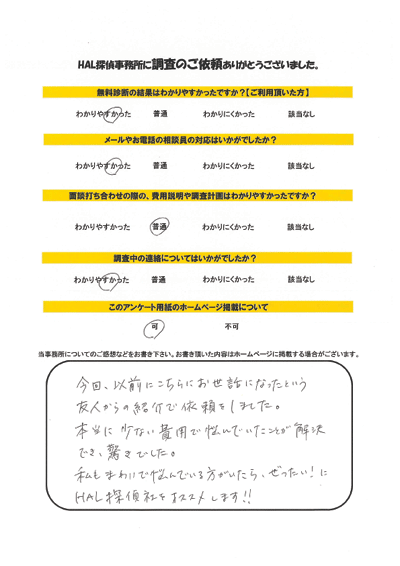 HAL探偵事務所に調査のご依頼ありがとうございました。
無料診断の結果はわかりやすかったですか？【ご利用頂いた方】
わかりやすかった 普通 わかりにくかった 該当なし
メールやお電話の相談員の対応はいかがでしたか？
わかりやすかった 普通 わかりにくかった 該当なし
面談打ち合わせの際の、費用説明や調査計画はわかりやすかったですか？
わかりやすかった 普通 わかりにくかった 該当なし
調査中の連絡についてはいかがでしたか？
わかりやすかった 普通 わかりにくかった 該当なし
このアンケート用紙のホームページ掲載について
可 不可
当事務所についてのご感想などをお書き下さい。お書き頂いた内容はホームページに掲載する場合がございます。
今回、以前にこちらにお世話になったという
友人からの紹介で依頼をしました。
本当に少ない費用で悩んでいたことが解決
でき、驚きでした。
私もまわりで悩んでいる方がいたら、ぜったい！に
HAL探偵社をオススメします!!